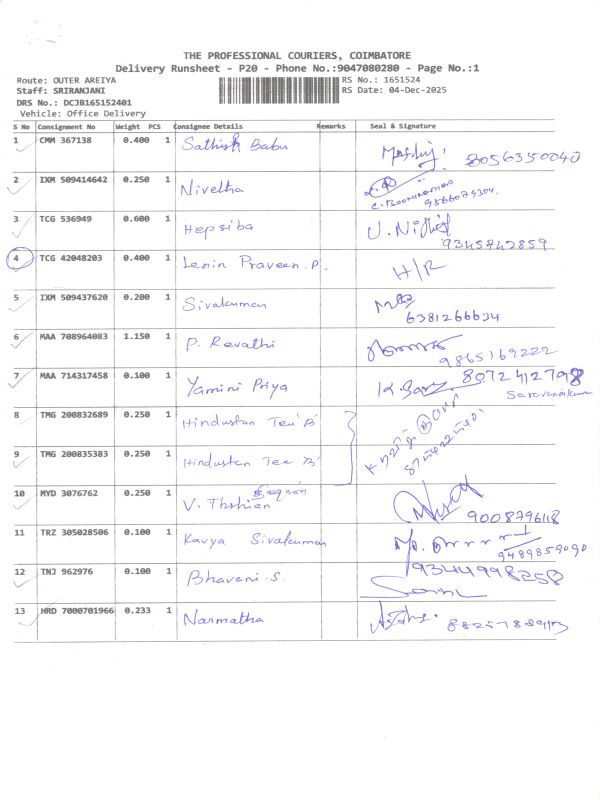 THE PROFESSIONAL COURIERS, COIMBATORE
Delivery Runsheet - P20 - Phone No.:9047080280 - Page No.:1
Route: OUTER AREIYA RS No.: 1651524
Staff: SRIRANJANI RS Date: 04-Dec-2025
DRS No.: DCJB165152401
Vehicle: Office Delivery
S No Consignment No Weight PCS Consignee Details Remarks Seal & Signature
1 CMM 367138 0.400 1 Sathish Babu 8056350040
2 IXM 509414642 0.250 1 Nivetha 9566079304
3 TCG 536949 0.600 1 Hepsiba 9345742859
4 TCG 42048203 0.400 1 Lenin Praveen.P. H/R
5 IXM 509437620 0.200 1 Sivakumar 6381266634
6 MAA 708964083 1.150 1 P. Revathi 9865169222
7 MAA 714317458 0.100 1 Yamini Priya 8072412798
Saravanakumar
8 TMG 200832689 0.250 1 Hindustan Tex 'B'
9 TMG 200835383 0.250 1 Hindustan Tex 'B'
10 MYD 3076762 0.250 1 V. 9008796118
11 TRZ 305028506 0.100 1 Kavya Sivakumar 9489859090
12 TNJ 962976 0.100 1 Bhavani.S. 9344998258
13 HRD 7000701966 0.233 1 Narmatha